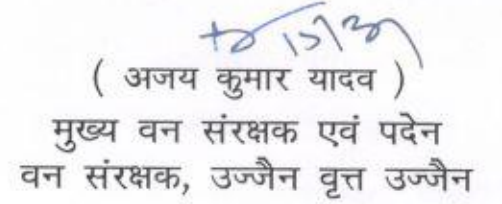 ( अजय कुमार यादव )
मुख्य वन संरक्षक एवं पदेन
वन संरक्षक, उज्जैन वृत्त उज्जैन